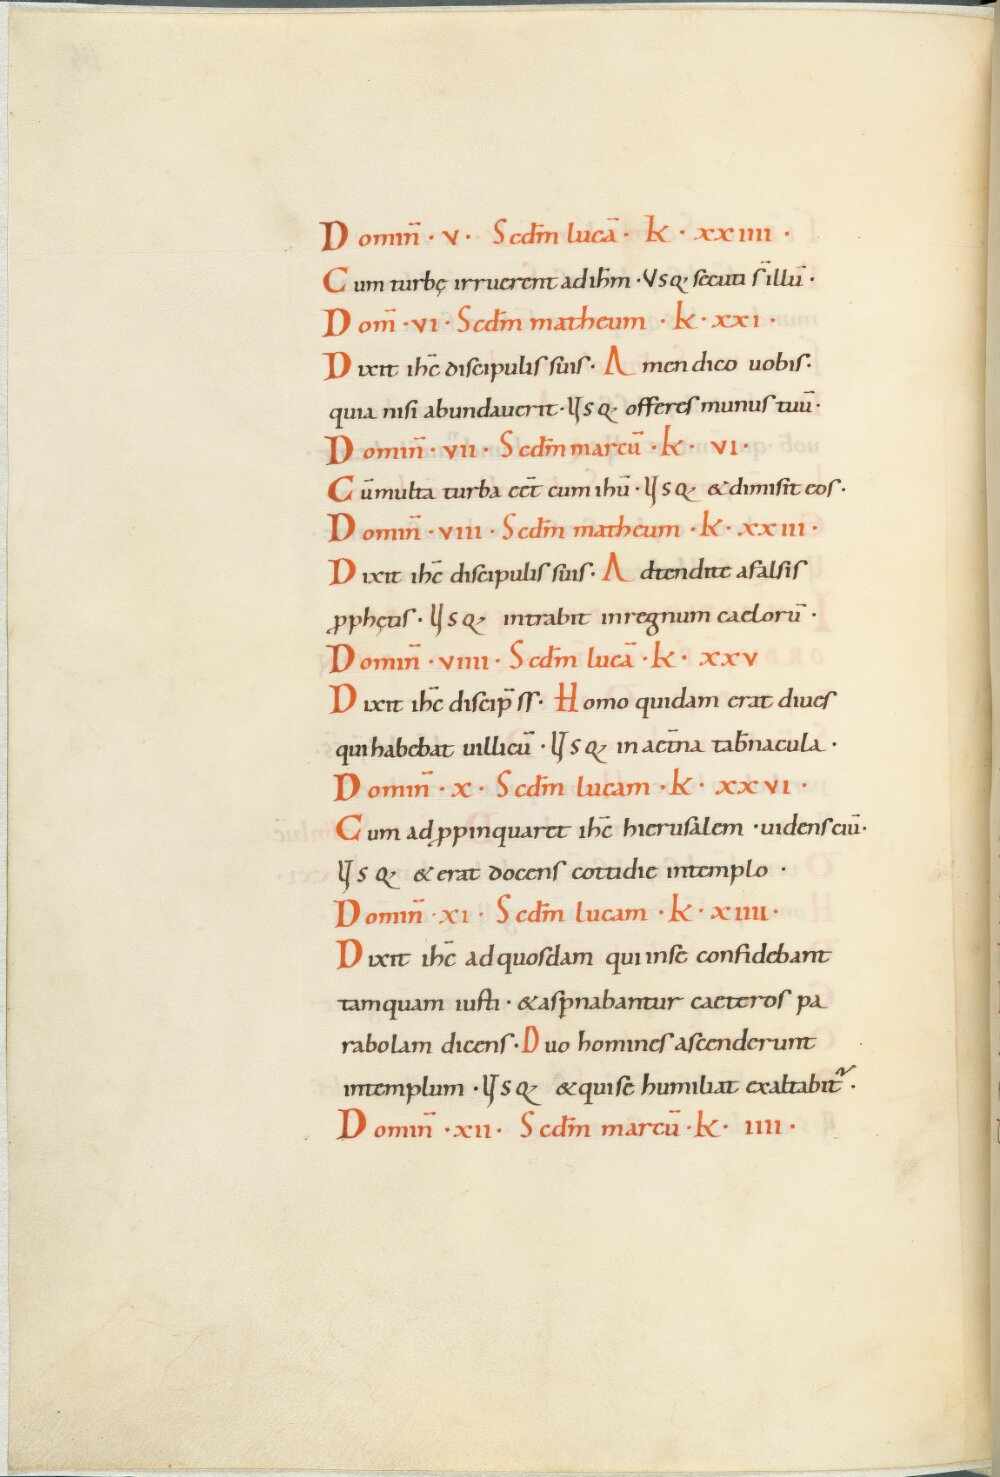 Domiñ · v · Scdm̄ lucā · k · xxiiii ·
Cum turbę irruerent ad ihm̄ · Vsq· secuti s̄ illū ·
Dom̄ · vi · Scdm̄ matheum · k · xxi ·
Dixit ihc̄ discipulis suis · Amen dico uobis ·
quia nisi abundauerit · Usq· offeres munus tuū ·
Domiñ · vii · Scdm̄ marcū · k · vi ·
Cū multa turba eēt cum ihū · Usq· & dimisit eos ·
Domiñ · viii · Scdm̄ matheum · k · xxiii ·
Dixit ihc̄ discipulis suis · Adtendite a falsis
ꝓphętis · Usq· intrabit in regnum caelorū ·
Domiñ · viiii · Scdm̄ lucā · k · xxv
Dixit ihc̄ discip̄ ss · Homo quidam erat diues
qui habebat uillicū · Usq· in aet̄na tab̄nacula ·
Domiñ · x · Scdm̄ lucam · k · xxvi ·
Cum adꝓpinquaret ihc̄ hierusalem · uidens ciū ·
Usq· & erat docens cottidie in templo ·
Domiñ · xi · Scdm̄ lucam · k · xiiii ·
Dixit ihc̄ ad quosdam qui in se confidebant
tamquam iusti · & asp̄nabantur caeteros pa
rabolam dicens · Duo homines ascenderunt
in templum · Usq· & qui se humiliat exaltabit᷑ ·
Domiñ · xii · Scdm̄ marcū · k · iiii ·